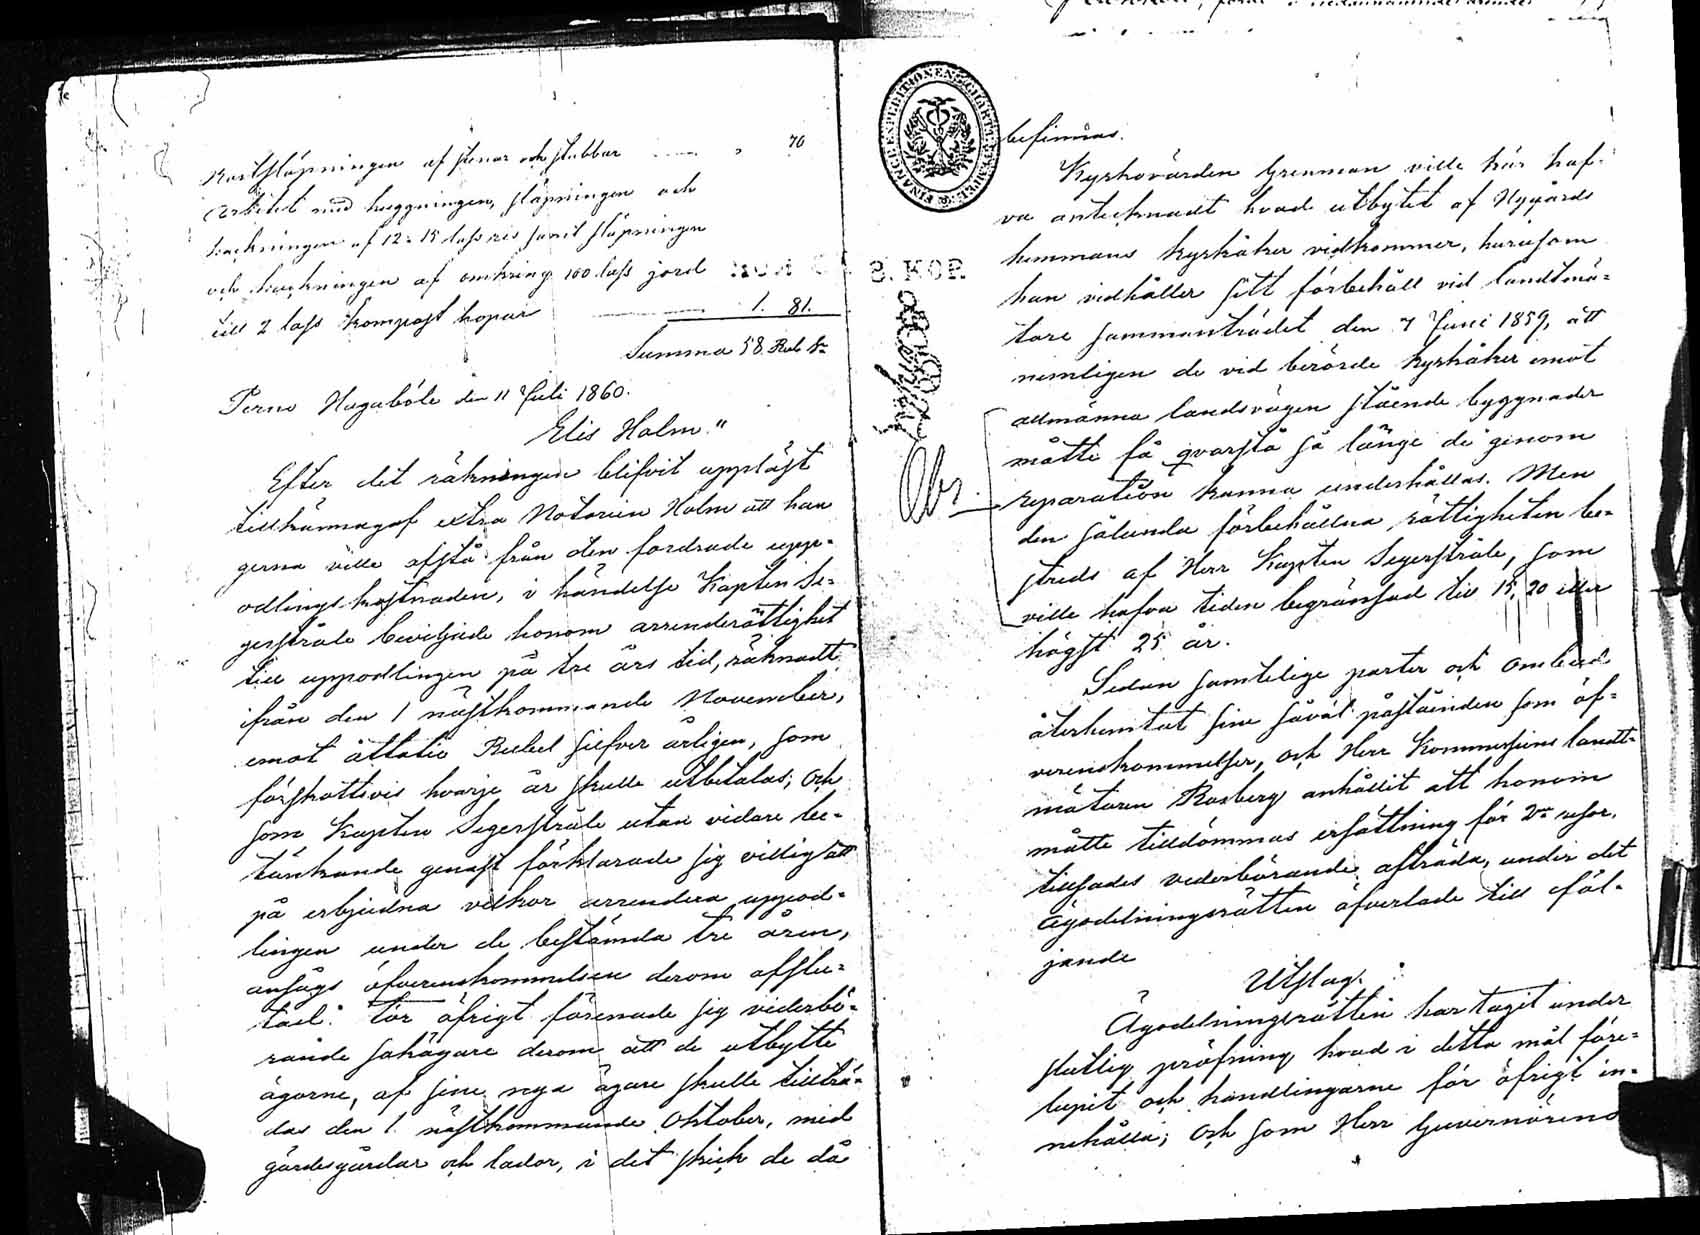 Bortsläpningen af stenar och stubbar " 70
Arbetet med huggningen, släpningen och
hackningen af 12 a 15 lass ris samt släpningen
och hackningen af omkring 100 lass jord
till 2 lass kompost hopar 1. 81.
Summa 58 Rub Sr
Perno Hagaböle den 11 Juli 1860.
Elis Holm."
Efter det räkningen blifvit uppläst
tillkännagaf extra Notarien Holm att han
gerna ville afstå från den fordrade upp-
odlings kostnaden, i händelse Kapten Se-
gerstråle beviljade honom arrenderättighet
till uppodlingen på tre års tid, räknadt
ifrån den 1 nästkommande November,
emot åttatio Rubel silfver årligen, som
förskottsvis hvarje år skulle utbetalas; och
som Kapten Segerstråle utan vidare be-
tänkande genast förklarade sig villig att
på erbjudna vilkor arrendera uppod-
lingen under de bestämda tre åren,
ansågs öfverenskommelsen derom afslu-
tad. För öfrigt förenade sig vederbö-
rande sakägare derom att de utbytte
ägorne, af sine nya ägare skulle tillträ-
das den 1 nästkommande Oktober, med
gärdesgårdar och lador, i det skick de då
FINANCE EXPEDITIONEN CHARTÆ STEMPEL
S. KOP.
Obs.
befinnas.
Kyrkovärden Grenman ville här haf-
va antecknadt hvad utbytet af Nygårds
hemmans Kyrkåker vidkommer, hurusom
han vidhåller sitt förbehåll vid landtmä-
tare sammanträdet den 7 Juni 1859, att
nemligen de vid berörde Kyrkåker emot
allmänna landsvägen stående byggnader
måtte få qvarstå så länge de genom
reparation kunna underhållas. Men
den sålunda förbehållna rättigheten be-
streds af Herr Kapten Segerstråle, som
ville hafva tiden begränsad till 15, 20 eller
högst 25 år.
Sedan samtelige parter och ombud
återhemtat sine såväl påståenden som öf-
verenskommelser, och Herr Kommissions landt-
mätaren Rosberg anhållit att honom
måtte tilldömmas ersättning för 2ne resor,
tillsades vederbörande afträda, under det
Ägodelningsrätten öfverlade till föl-
jande
Utslag:
Ägodelningsrätten har tagit under
slutlig pröfning hvad i detta mål före-
lupit och handlingarne för öfrigt in-
nehålla; och som Herr Guvernörens